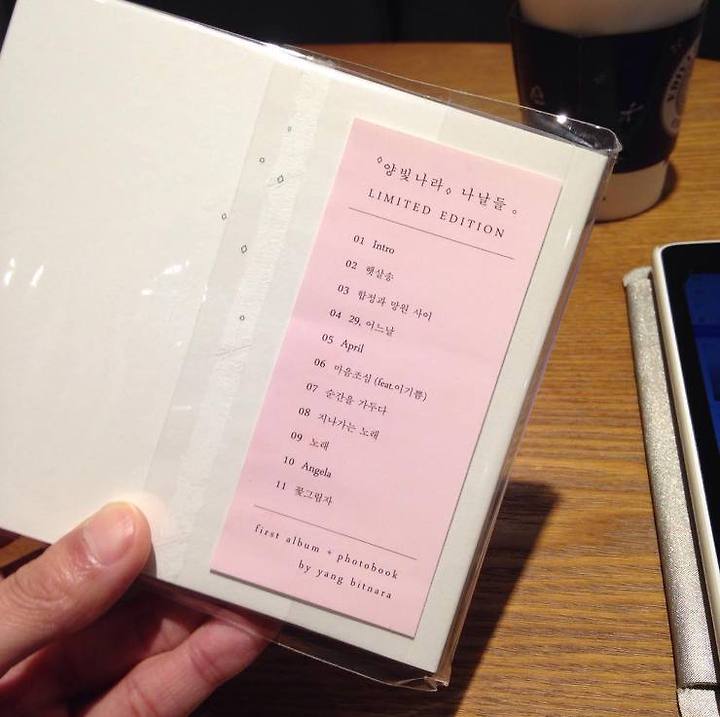 ◇양빛나라◇ 나날들。
LIMITED EDITION
01 Intro
02 햇살송
03 합정과 망원 사이
04 29, 어느날
05 April
06 마음조심 (feat.이기쁨)
07 순간을 가두다
08 지나가는 노래
09 노래
10 Angela
11 꽃그림자
first album + photobook
by yang bitnara